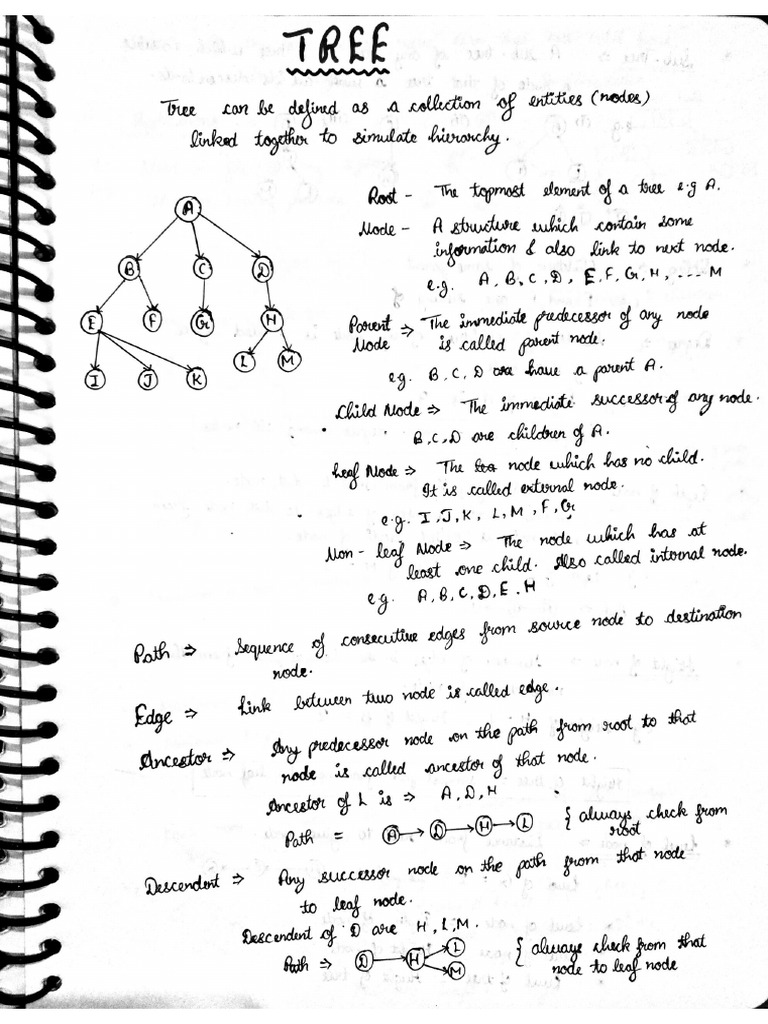 TREE
Tree can be defined as a collection of entities (nodes)
linked together to simulate hierarchy.
Root - The topmost element of a tree e.g A.
Node - A structure which contain some
information & also link to next node.
e.g. A, B, C, D, E, F, G, H, ---- M
A
B C D
E F G H
L M
I J K
Parent Node => The immediate predecessor of any node
is called parent node.
eg. B, C, D are have a parent A.
Child Node => The immediate successor of any node.
B, C, D are children of A.
Leaf Node => The node which has no child.
It is called external node.
e.g. I, J, K, L, M, F, G
Non-leaf Node => The node which has at
least one child. Also called internal node.
eg. A, B, C, D, E, H
Path => Sequence of consecutive edges from source node to destination
node.
Edge => Link between two node is called edge.
Ancestor => Any predecessor node on the path from root to that
node is called ancestor of that node.
Ancestor of L is => A, D, H
Path = A D H L { always check from
root
Descendent => Any successor node on the path from that node
to leaf node.
Descendent of D are H, L, M.
Path => D H L M { always check from that
node to leaf node